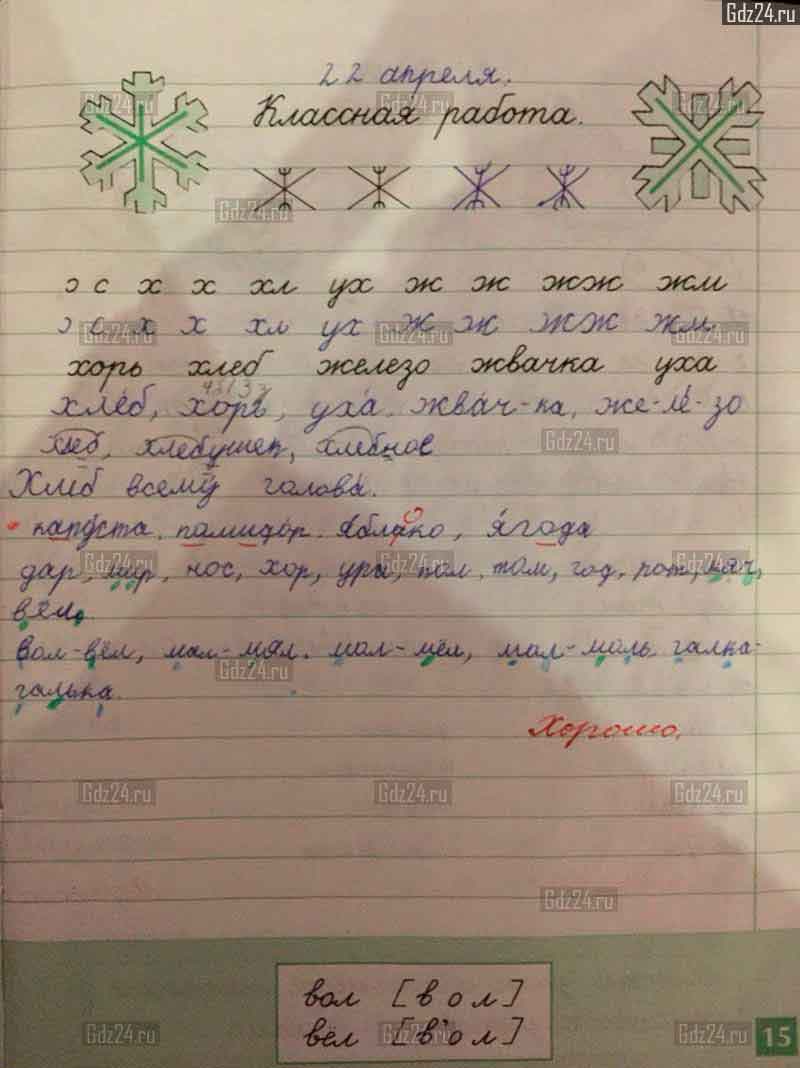 Gdz24.ru
22 апреля.
Классная работа.
ɔ с х х хл ух ж ж жж жм
ɔ с х х хл ух ж ж жж жм
хорь хлеб железо жвачка уха
хлеб, хорь, уха. жвач-ка, же-ле-зо
хлеб, хлебушек, хлебное
Хлеб всему голова.
капуста, помидор. яблоко, ягода
дар, мир, нос, хор, ура, пол, том, год, рот, мяч,
вёл.
Вол-вёл, мал-мял. мол-мёл, мал-моль. галка-
галька.
Хорошо.
вол [в о л]
вёл [в'о л]
15